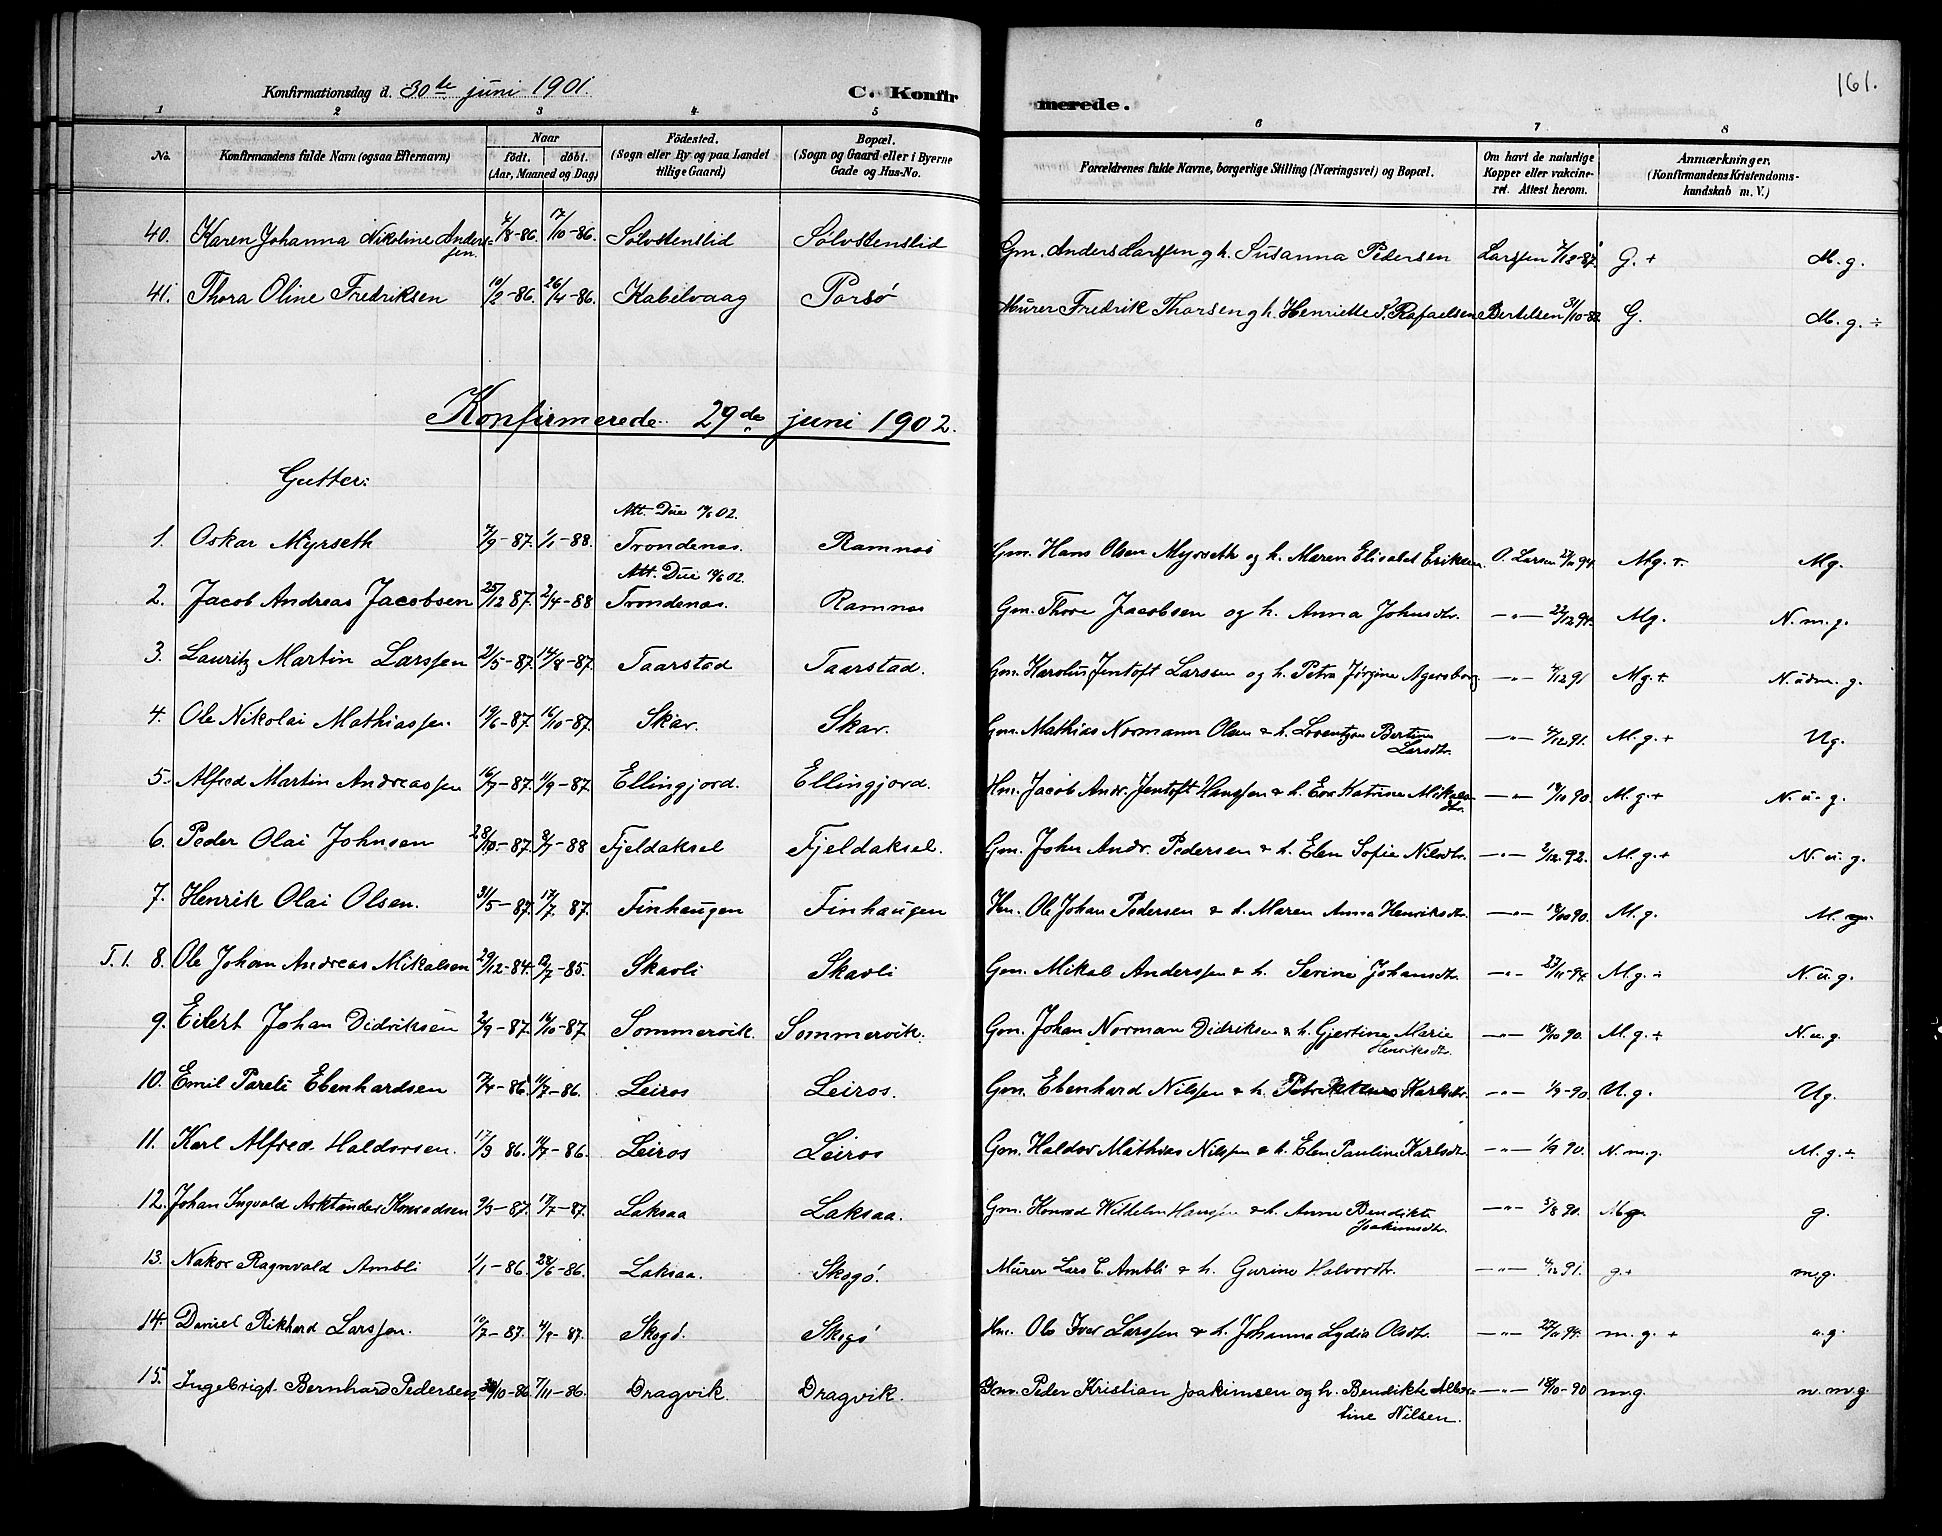 Konfirmationsdag d. 30te juni 1901.
C. Konfir
merede.
161.
1 2 3 4 5 6 7 8
No.
Konfirmandens fulde Navn (ogsaa Efternavn)
Naar
født. døbt.
(Aar, Maaned og Dag)
Fødested.
(Sogn eller By og paa Landet
tillige Gaard)
Bopæl.
(Sogn og Gaard eller i Byerne
Gade og Hus-No.
Forældrenes fulde Navne, borgerlige Stilling (Næringsvei) og Bopæl.
Om havt de naturlige
Kopper eller vakcine-
ret. Attest herom.
Anmærkninger.
(Konfirmandens Kristendoms-
kundskab m. V.)
40. Karen Johanna Nikoline Anders- 17/10-86. Sølvstenslid Sølvstenslid Gm. Anders Larssen g h. Susanna Pedersen Larssen G. + M. g.
sen.
41. Thora Oline Fredriksen 10/2-86. 26/4-86. Kabelvaag Porsø Murer Fredrik Thorsen g h. Henriette Rafaelsen Bertelsen G. M. g. ÷
Konfirmerede 29de juni 1902.
Gutter:
Att. Due 02.
1. Oskar Myrseth 7/9-87. 1/1-88. Trondenæs. Ramnæs Gm. Hans Olsen Myrseth og h. Maren Elisabet Eriksen. O. Larsen Mg. + Mg.
Att. Due 02.
2. Jacob Andreas Jacobsen 25/12 87. 2/4-88 Trondenæs. Ramnæs Gm. Thore Jacobsen og h. Anna Johnsdtr. —"— 22/12 94. Mg. N. m. g.
3. Lauritz Martin Larssen 2/5-87. 14/8-87. Taarstad Taarstad. Gm. Karolus Jentoft Larssen og h. Petra Jørgine Agersborg —"— Mg. + N. udm. g.
4. Ole Nikolai Mathiassen. 19/6-87. 16/10-87. Skar. Skar. Gm. Mathias Normann Olsen & h. Lorentze Bertine —"— M. g. + Ug.
Larsdtr.
5. Alfred Martin Andreassen 16/7-87. 11/9-87. Ellingjord. Ellingjord. Hm. Jacob Andr. Jentoft Hanssen & h. Eva Katrine Mikals- —"— M. g. + N. u. g.
dtr.
6. Peder Olai Johnsen 28/10-87. 88 Fjeldaksel Fjeldaksel. Gm. John Andr. Pedersen & h. Elen Sofie Nilsdtr. —"— 2/12. 92. M. g. + N. u. g.
7. Henrik Olai Olsen. 31/5-87. 17/7 87. Finhaugen Finhaugen Hm. Ole Johan Pedersen & h. Maren Anna Henriksdtr. —"— M. g.
T. 1. 8. Ole Johan Andreas Mikalsen 29/12-84. 12/7-85. Skavli Skavli Gm. Mikal Anderssen & h. Serine Johansdtr. —"— 23/11-94. M. g. ÷ N. u. g.
9. Eilert Johan Didriksen 2/9-87. 16/10-87. Sommervik. Sommervik. Gm. Johan Norman Didriksen & h. Gjertine Marie —"— 18/10 90. M. g. + N. u. g.
Henriksdtr.
10. Emil Pareli Ebenhardsen 11/7-86. Leiros Leiros. Gm. Ebenhard Nilssen & h. Karlsdtr. —"— 1/9-90. U. g. Ug.
11. Karl Alfred Haldorsen. 17/3 86. 11/7-86. Leiros Leiros Gm. Haldor Mathias Nilssen & h. Elen Pauline Karlsdtr. —"— 1/9 90. N. m. g. M. g. ÷
12. Johan Ingvald Arktander Konradsen 9/3-87. 17/7-87. Laksaa Laksaa. Gm. Konrad Wilhelm Hanssen & h. Anne Bendikte —"— 5/8 90. g.
Joakimsdtr.
13. Nakor Ragnvald Ambli 1/1-86. 28/6-86. Laksaa. Skogø. Murer Lars C. Ambli & h. Gurine Halvordtr. —"— g. + m. g.
14. Daniel Rikhard Larssen. 87. 87. Skogø. Skogø Hm. Ole Iver Larssen & h. Johanna Lydia Olsdtr. —"— m. g. +
15. Ingebrigt Bernhard Pedersen 30/10-86. 7/11-86. Dragvik. Dragvik. Gm. Peder Kristian Joakimsen og h. Bendikte Alber- —"— 18/10-90 m. g. n. m. g.
tine Nilsen.